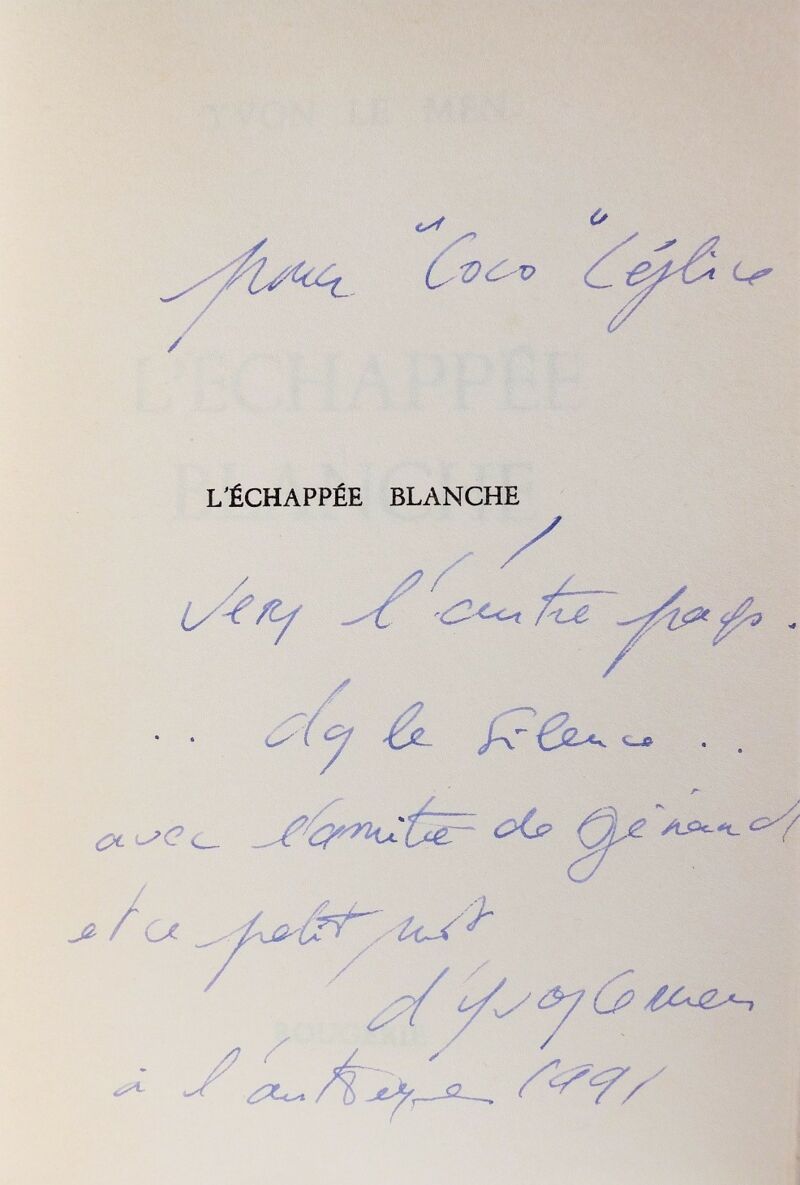 YVON LE MEN
pour "Coco" Léglise
L'ÉCHAPPÉE
BLANCHE
L'ÉCHAPPÉE BLANCHE
vers l'autre pays.
.. ds le silence ..
avec l'amitié de Gérard
et ce petit mot
d'Yvon Le Men
à l'automne 1991
ROUGERIE